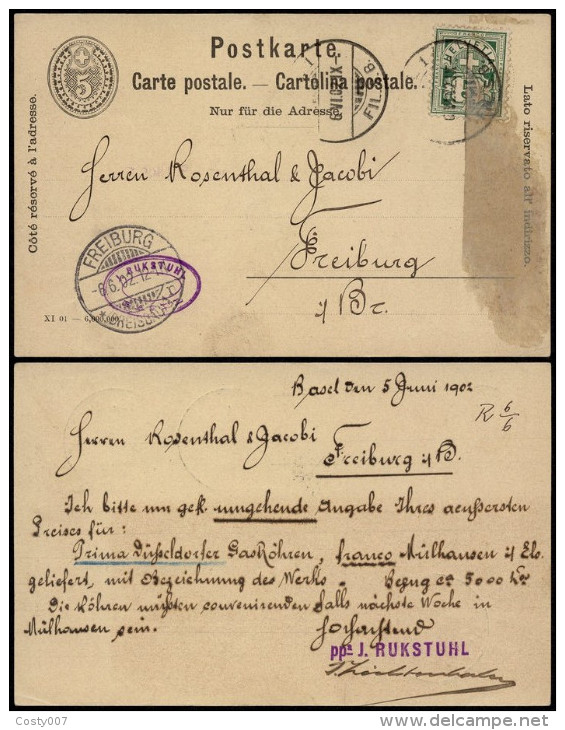 Postkarte.
Carte postale. — Cartolina postale.
Nur für die Adresse.
Côté réservé à l'adresse.
Lato riservato all' indirizzo.
5
HELVETIA
FRANCO
FIL.
Herren Rosenthal & Jacobi
Freiburg
i/Br.
FREIBURG
-6.6.02.12-
* (BREISGAU) *
J. RUKSTUHL
XI 01 — 6,000,000.
Basel den 5 Juni 1902
R 6/6
Herren Rosenthal & Jacobi
Freiburg i/B.
Ich bitte um gefl. umgehende Angabe Ihres aeussersten
Preises für:
Prima Düsseldorfer Gasröhren, franco Mülhausen i/ Els.
geliefert, mit Bezeichnung des Werks. Bezug ca 5000 Ko
Die Röhren müssten convenirenden Falls nächste Woche in
Mülhausen sein.
Hochachtend
ppa J. RUKSTUHL
Costy007
delcampe.net